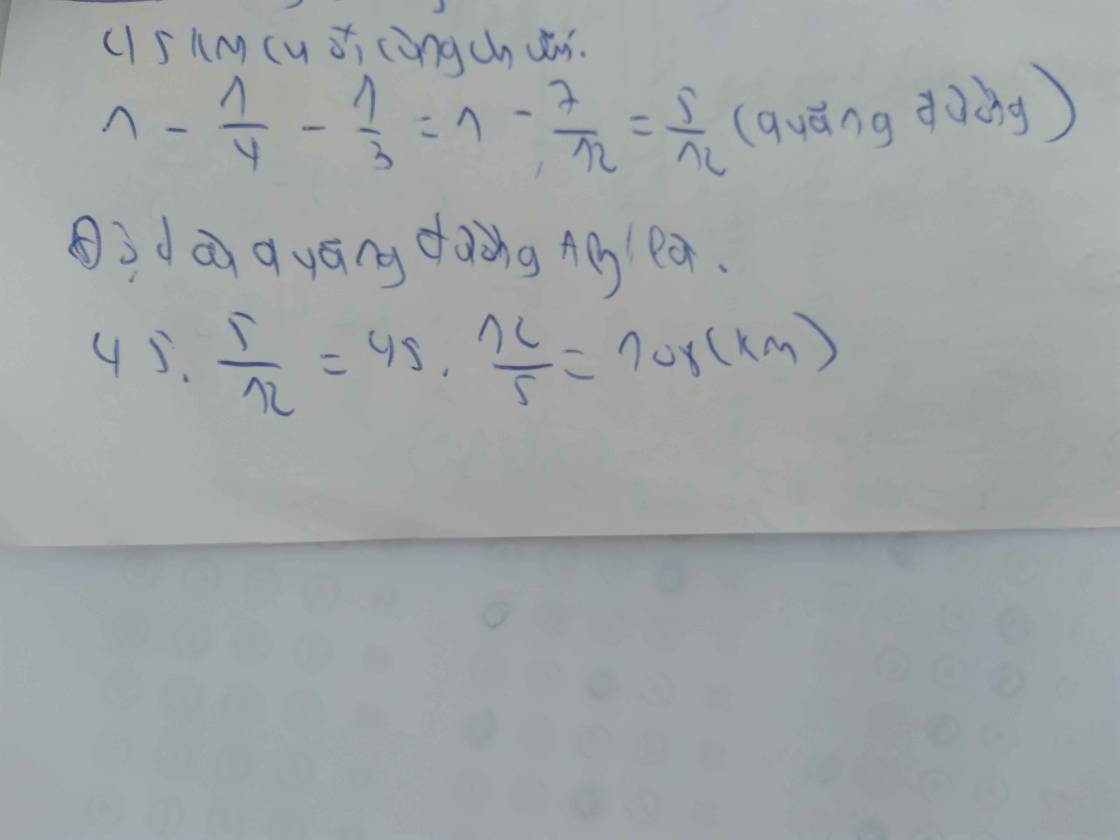 45 km cuối cùng chiếm.
1 - 1/4 - 1/3 = 1 - 7/12 = 5/12 (quãng đường)
Độ dài quãng đường AB là.
45. 5/12 = 45. 12/5 = 108 (km)